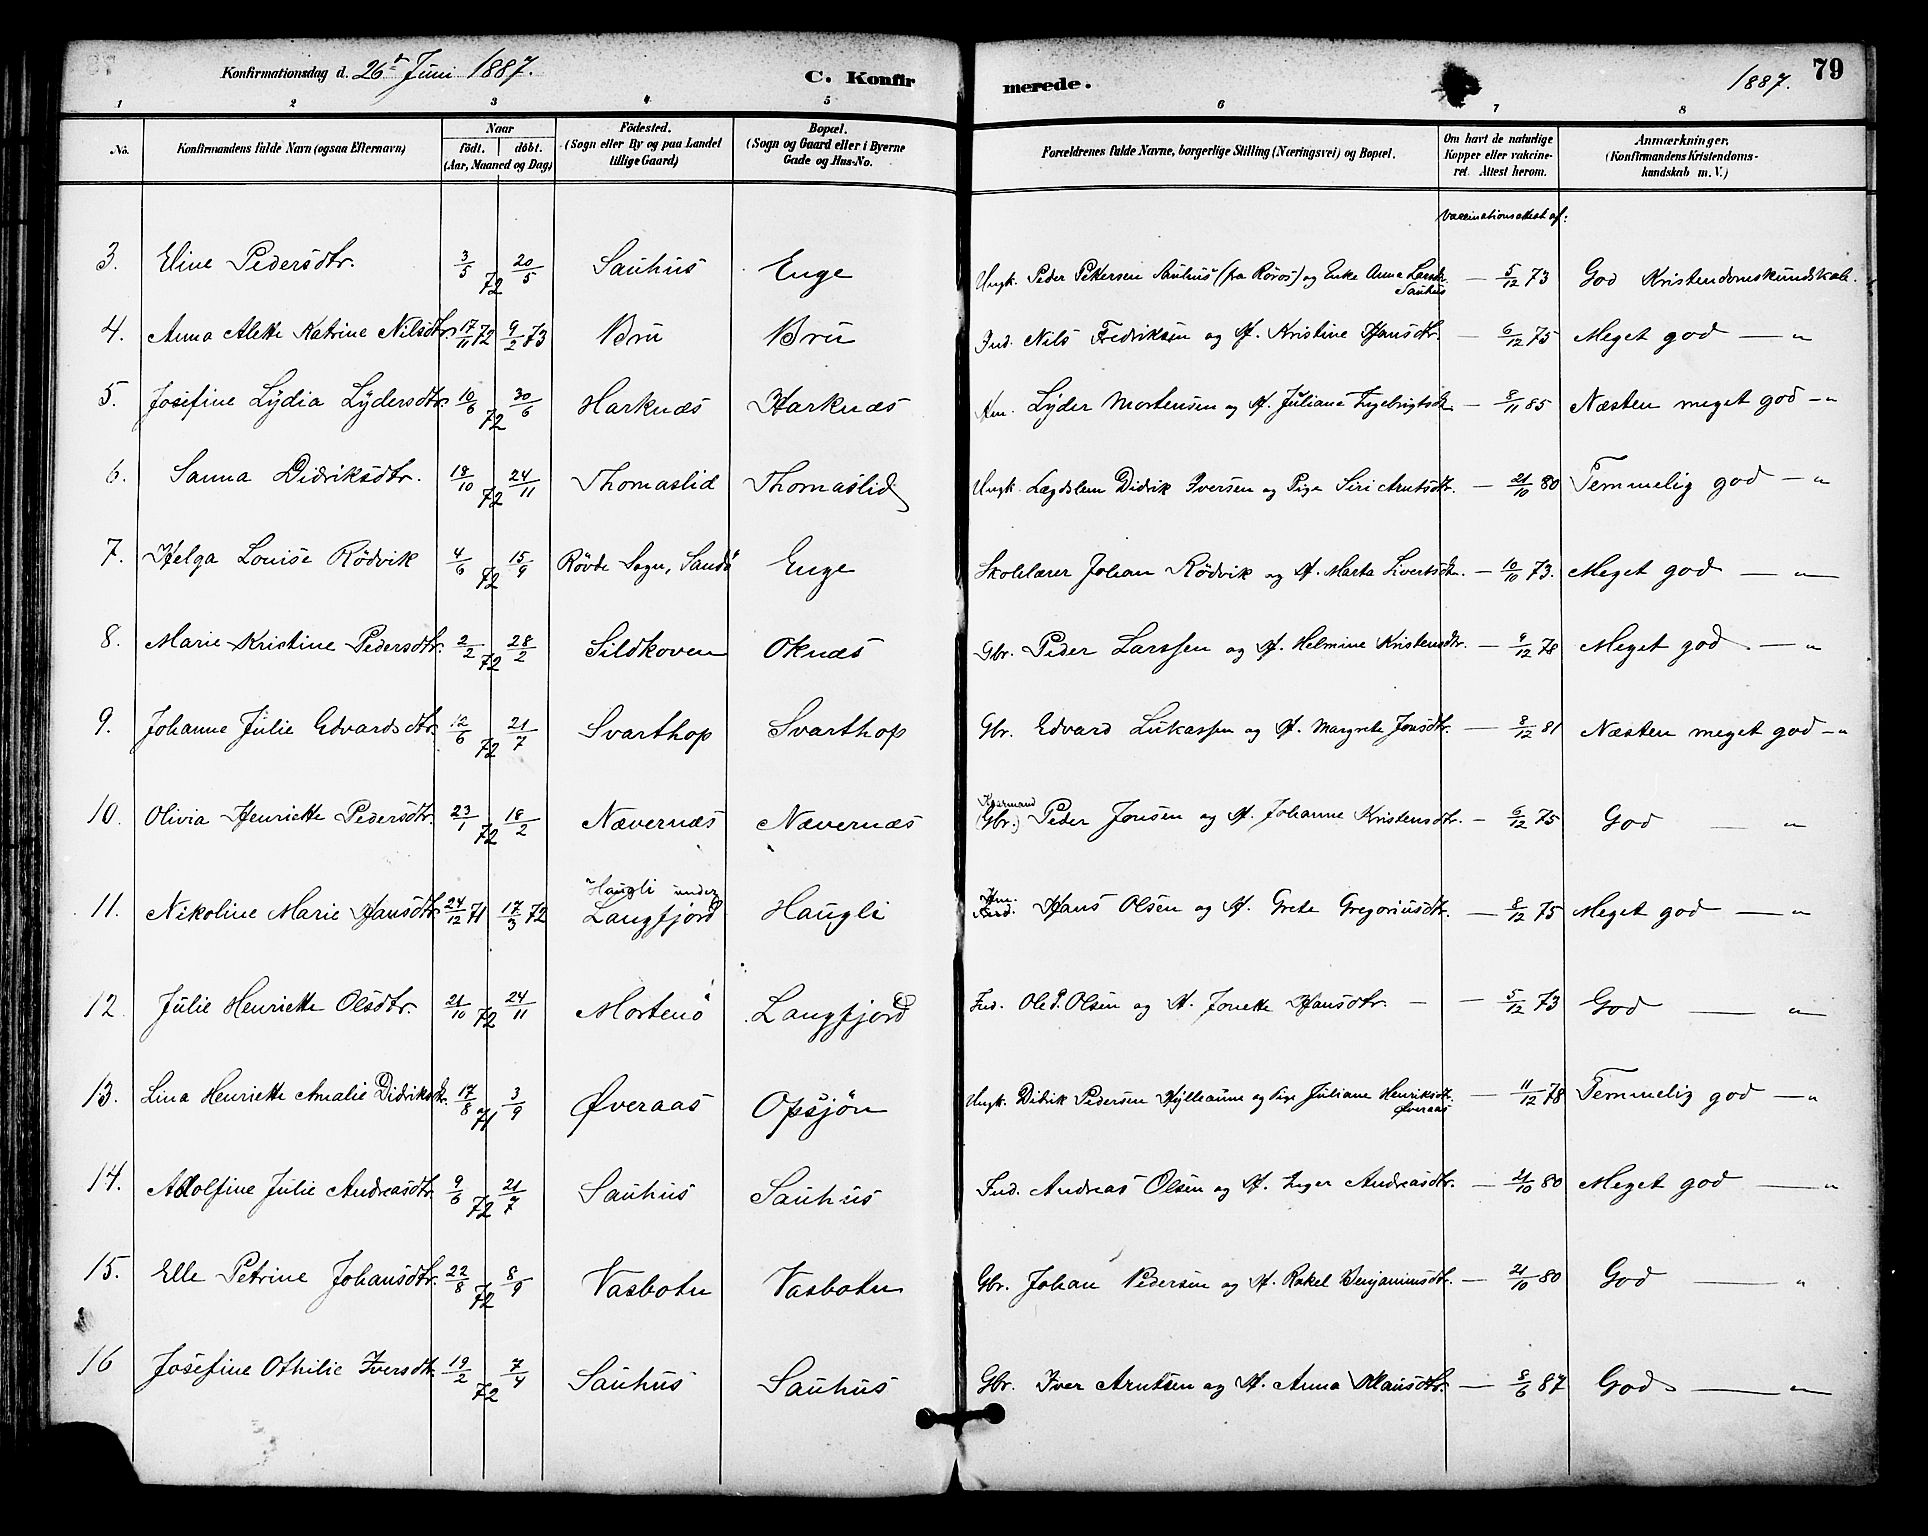 Konfirmationsdag d. 26de Juni 1887. C. Konfirmerede. 1887. 79
1 2 3 4 5 6 7 8
No. Konfirmandens fulde Navn (ogsaa Efternavn) Naar födt. döbt. (Aar, Maaned og Dag) Födested. (Sogn eller By og paa Landet tillige Gaard) Bopæl. (Sogn og Gaard eller i Byerne Gade og Hus-No. Forældrenes fulde Navne, borgerlige Stilling (Næringsvei) og Bopæl. Om havt de naturlige Kopper eller vakcineret. Attest herom. Anmærkninger. (Konfirmandens Kristendomskundskab m. V.)
Vaccinationsattest af:
3. Eline Pedersdtr. 3/5 72 20/5 Sauhus Enge Ungk. Peder Pettersen Sauhus (fra Röros) og Enke Anne Larsdtr. Sauhus — 5/12 73 God Kristendomskundskab.
4. Anna Alette Katrine Nilsdtr. 17/11 72 9/2 73 Bru Bru Ind. Nils Fredriksen og H. Kristine Hansdtr. — 6/12 75 Meget god — "
5. Josefine Lydia Lydersdtr. 10/6 72 30/6 Harknæs Harknæs Hm. Lyder Mortensen og H. Juliane Ingebrigtsdtr. — 8/11 85 Næsten meget god — "
6. Sanna Didriksdtr. 18/10 72 24/11 Thomaslid Thomaslid Ungk. Lægdslem Didrik Iversen og Pige Siri Arntsdtr. — 21/10 80 Temmelig god — "
7. Helga Louise Rödvik 4/6 72 15/9 Rövde Sogn, Sandö Enge Skolelærer Johan Rödvik og H. Marta Sivertsdtr. — 10/10 73. Meget god — "
8. Marie Kristine Pedersdtr. 2/2 72 28/2 Sildkoven Oknæs Gbr. Peder Larssen og H. Helmine Kristensdtr. — 9/12 78 Meget god — "
9. Johanne Julie Edvardsdtr. 12/6 72 21/7 Svarthop Svarthop Gbr. Edvard Lukassen og H. Margrete Jonsdtr. — 8/12 81 Næsten meget god — "
10. Olivia Henriette Pedersdtr. 23/1 72 18/2 Nævernæs Nævernæs Kaarmand (Gbr.) Peder Jonsen og H. Johanne Kristensdtr. — 6/12 75 God — "
11. Nikoline Marie Hansdtr. 24/12 71 17/3 72 Haugli under Langfjord Haugli Hm. Ind. Hans Olsen og H. Grete Gregoriusdtr. — 8/12 75 Meget god — "
12. Julie Henriette Olsdtr. 21/10 72 24/11 Mortenö Langfjord Ind. Ole P. Olsen og H. Jonette Hansdtr. — — 5/12 73 God — "
13. Lina Henriette Amalie Didriksdtr. 17/8 71 3/9 Øveraas Opsjön Ungk. Didrik Pedersen Hylleaune og Pige Juliane Henriksdtr. Øveraas — 11/12 78 Temmelig god — "
14. Adolfine Julie Andreasdtr. 9/6 72 21/7 Sauhus Sauhus Ind. Andreas Olsen og H. Inger Andreasdtr. — 21/10 80 Meget god — "
15. Elle Petrine Johansdtr. 22/8 72 8/9 Vasbotn Vasbotn Gbr. Johan Pedersen og H. Rakel Benjaminsdtr. — 21/10 80 God — "
16 Josefine Othilie Iversdtr. 19/2 72 7/4 Sauhus Sauhus Gbr. Iver Arntsen og H. Anna Klausdtr. — 8/6 87 God — "